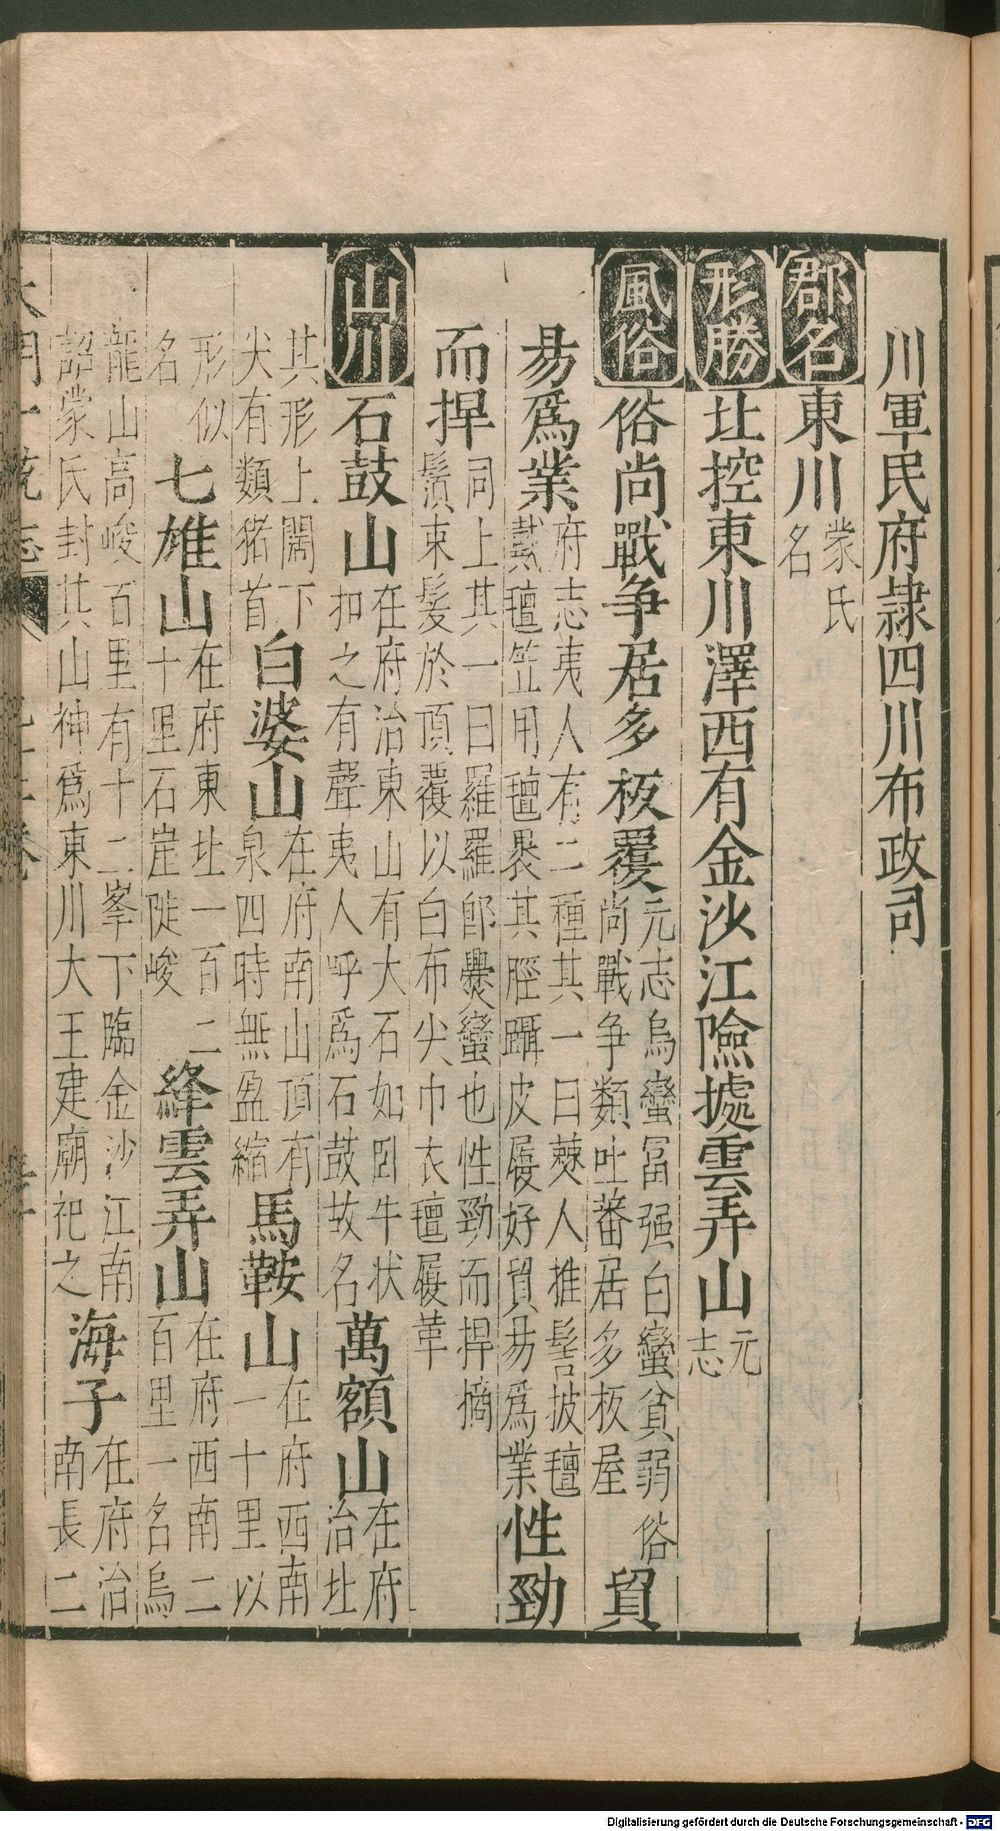 川軍民府隷四川布政司
郡名 東川 蒙氏名
形勝 北控東川澤西有金沙江險據雲弄山 元志
風俗 俗尚戰争居多板覆 元志烏蠻冨强白蠻貧弱俗尚戰争類吐蕃居多板屋 貿
易爲業 府志夷人有二種其一曰㸑人推髻披氊戴氊笠用氊裹其脛躡皮履好貿易爲業 性勁
而捍 同上其一曰羅羅卽㸑蠻也性勁而捍摘鬚束髪於頂覆以白布尖巾衣氊履革
山川 石鼓山 在府治東山有大石如卧牛状扣之有聲夷人呼爲石鼓故名 萬額山 在府治北
其形上闊下尖有類猪首 白婆山 在府南山頂有泉四時無盈縮 馬鞍山 在府西南一十里以
形似名 七雄山 在府東北一百二十里石崖陡峻 絳雲弄山 在府西南二百里一名烏
龍山高峻百里有十二峯下臨金沙江南詔蒙氏封其山神爲東川大王建廟祀之 海子 在府治南長二